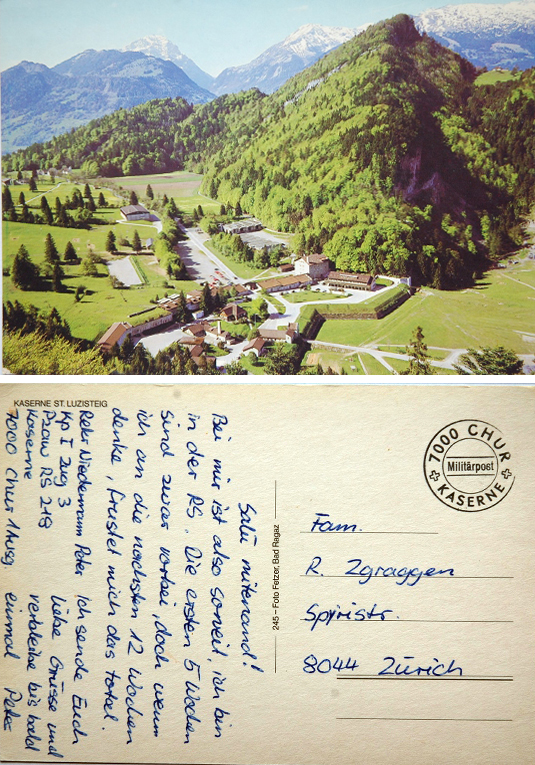 KASERNE ST. LUZISTEIG
Salü mitenand!
Bei mir ist also soweit, ich bin
in der RS. Die ersten 5 Wochen
sind zwar vorbei, doch wenn
ich an die nächsten 12 Wochen
denke, frustet mich das total.
Rekr Niedermann Peter ich sende Euch
Kp I Zug 3 liebe Grüsse und
Pzaw RS 218 verbleibe bis bald
Kaserne
7000 Chur 1 Ausg. einmal Peter
245 – Foto Fetzer, Bad Ragaz
7000 CHUR
Militärpost
KASERNE
Fam.
R. Zgraggen
Spyristr.
8044 Zürich